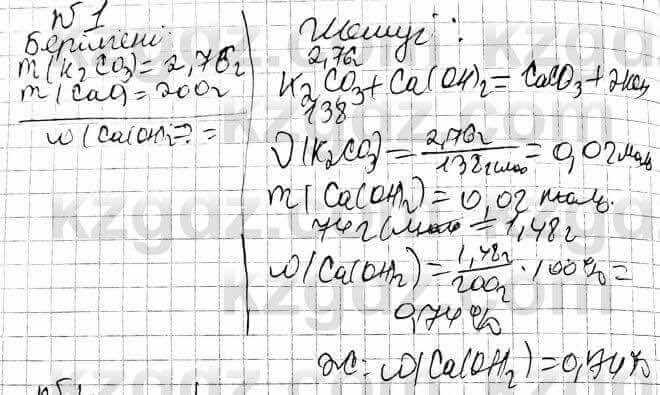 №1
Берілгені:
m(K₂CO₃)=2,76г
m(CaO)=200г
ω(Ca(OH)₂)-? =
Шешуі:
2,76г
K₂CO₃+Ca(OH)₂=CaCO₃+2KOH
138
ν(K₂CO₃)=2,76г/138г/моль=0,02моль
m(Ca(OH)₂)=0,02 моль.
74г/моль=1,48г
ω(Ca(OH₂)=1,48г/200г·100%=
0,74%
Ж: ω(Ca(OH₂)=0,74%
kzgdz.com